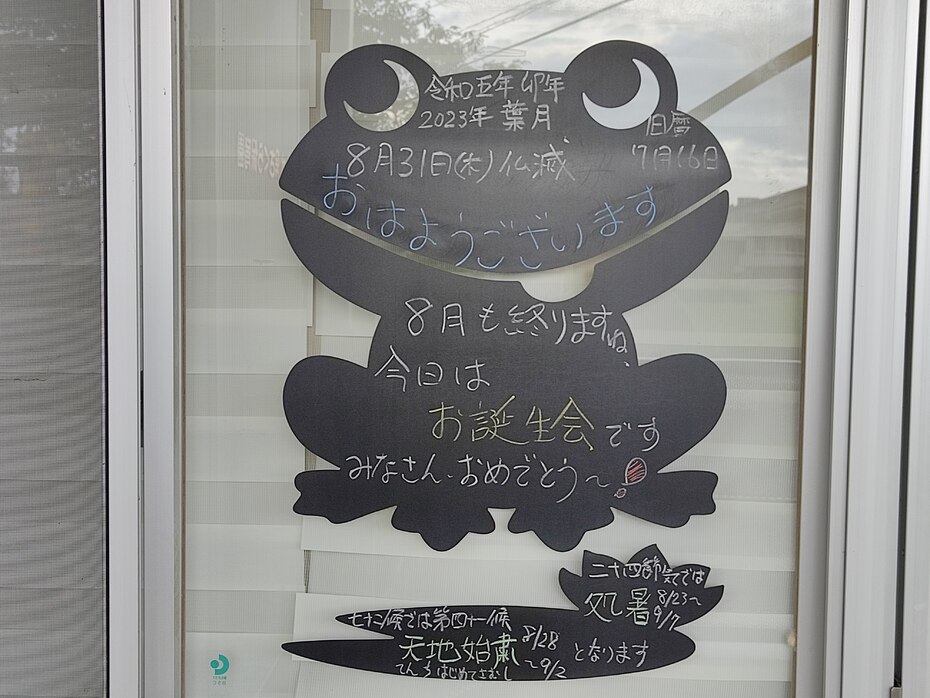 令和五年 卯年
2023年 葉月
旧暦
8月31日(木)仏滅
7月16日
おはようございます
8月も終りますね、
今日は
お誕生会です
みなさん、おめでとう～!
二十四節気では
処暑 8/23～9/7
七十二候では第四十一候
天地始粛 8/28～9/2 となります
てんちはじめてさむし